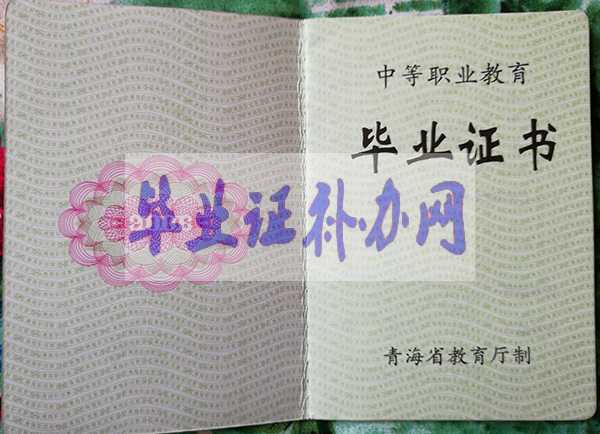 中等职业教育
毕业证书
毕业证补办网
青海省教育厅制